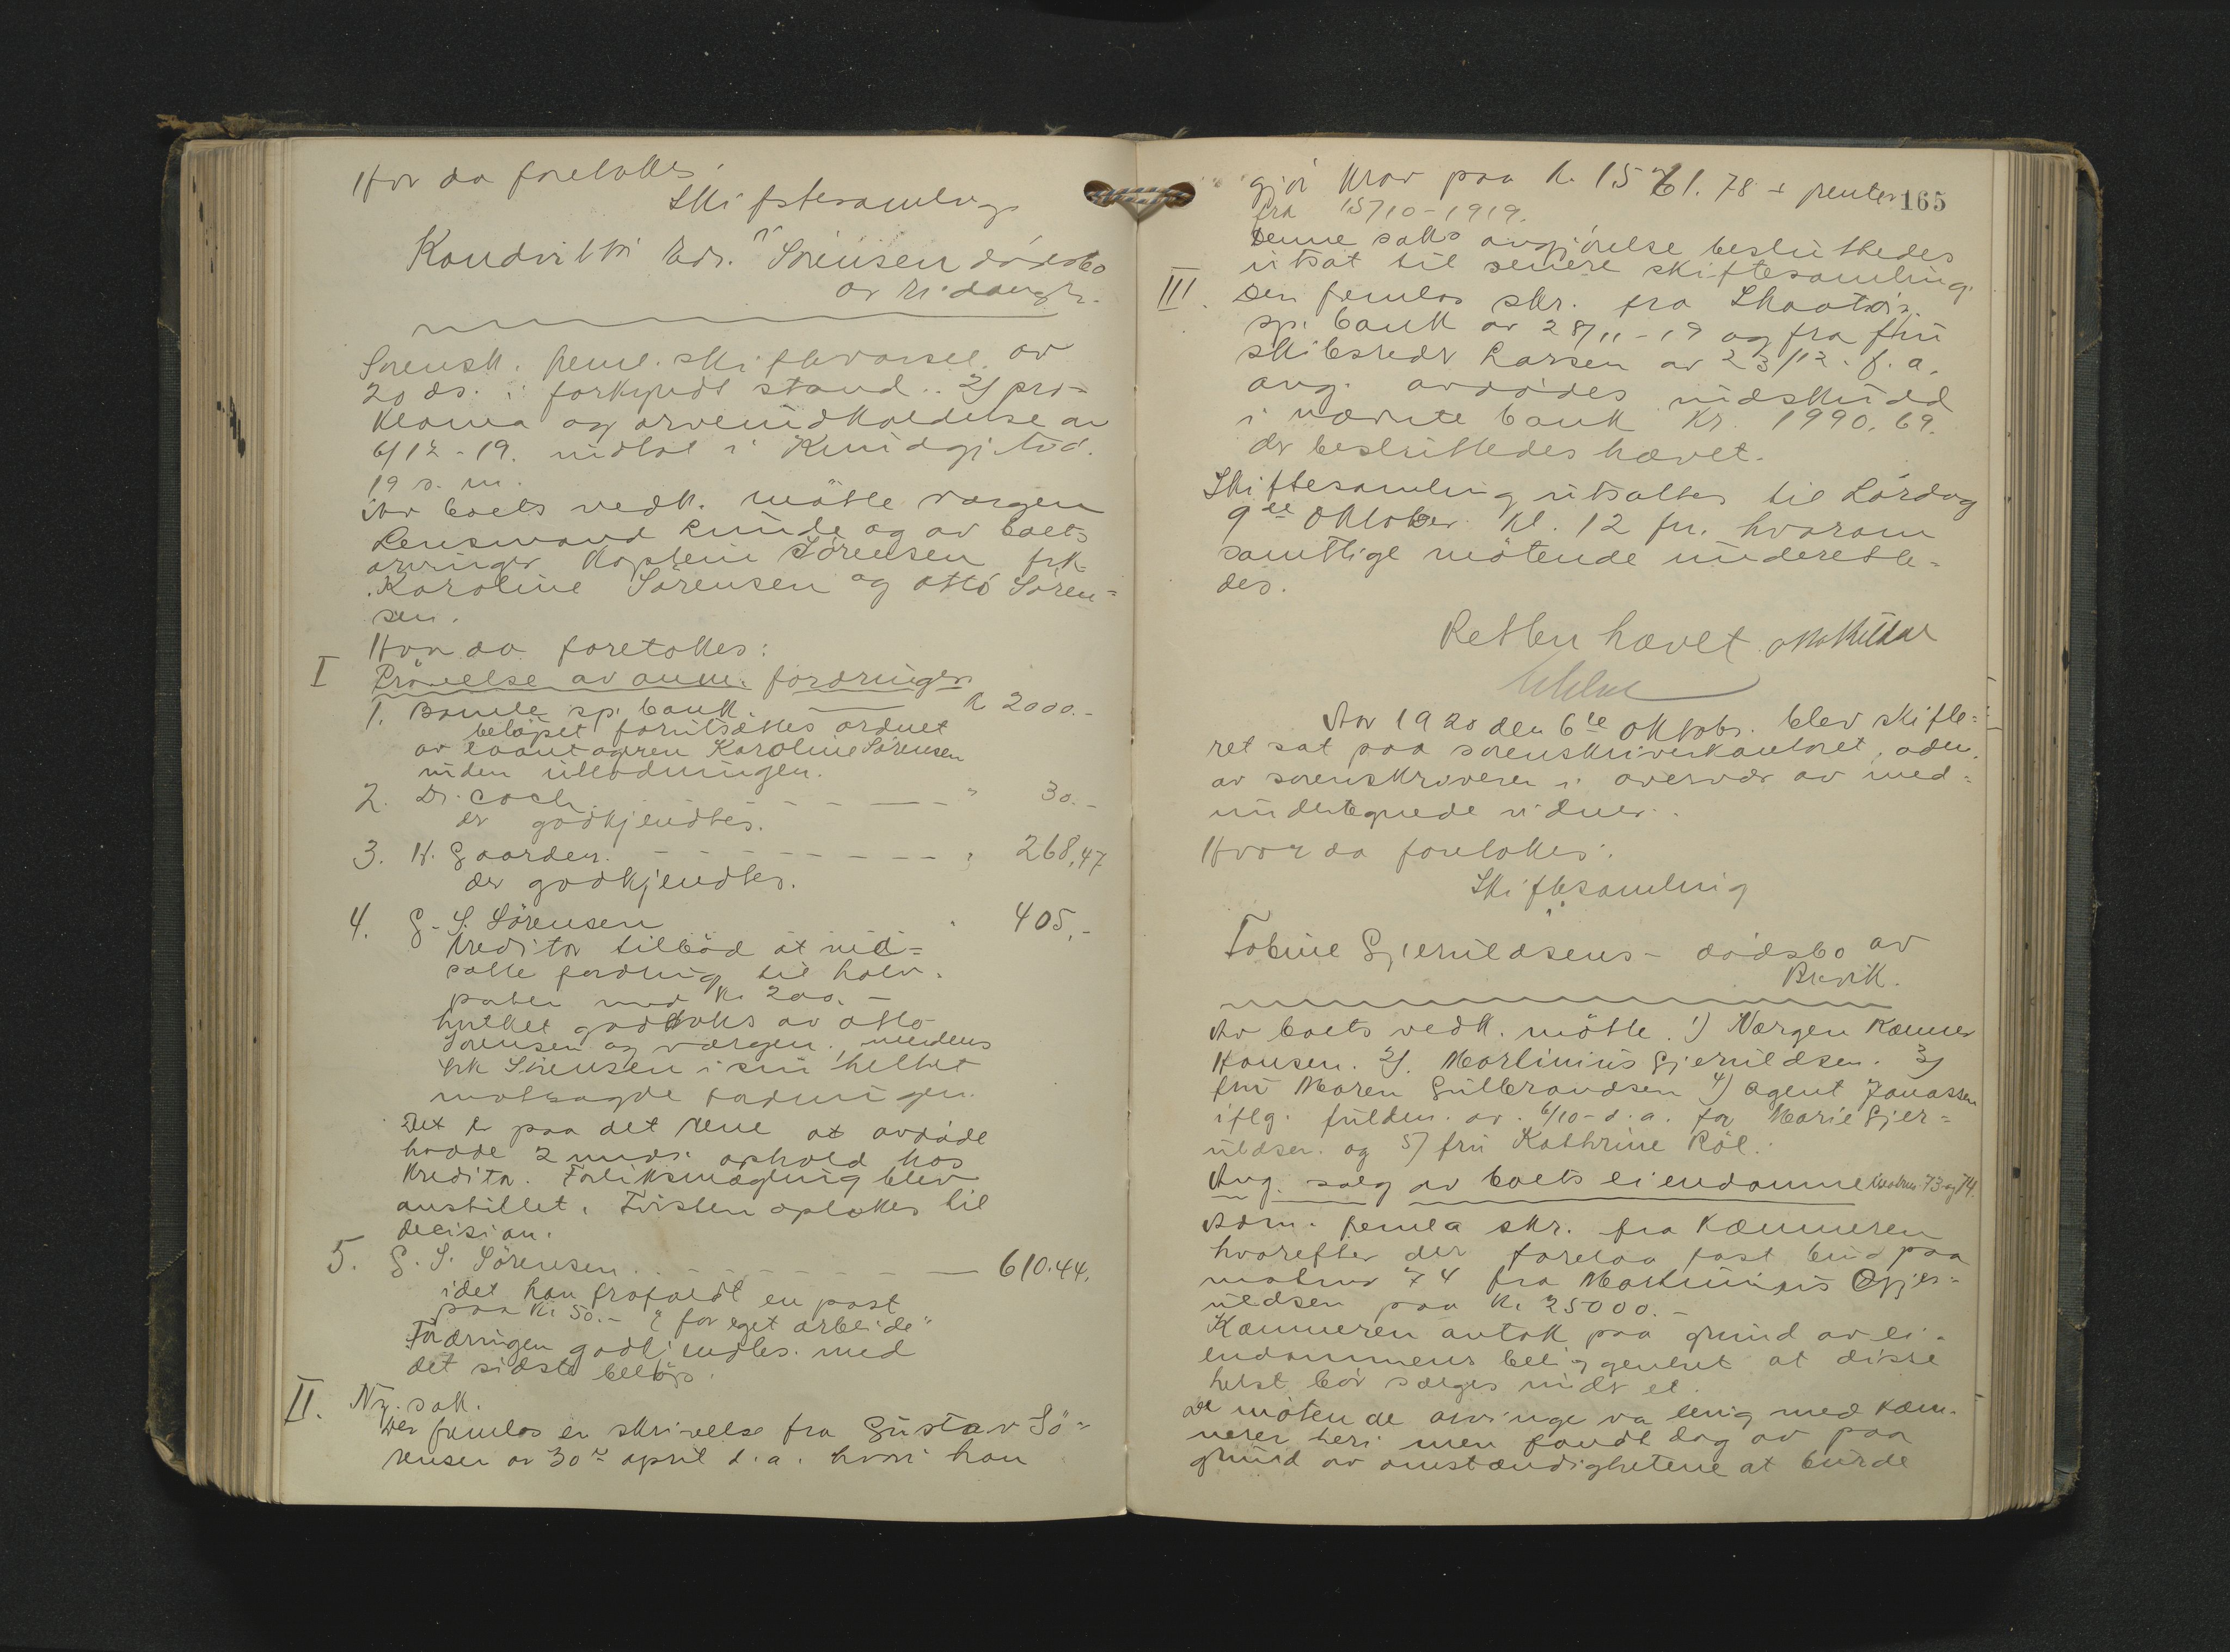 Hvor da foretokes:
Skiftesamling
i
Kondrikti Edv. Sørensen dødsbo
av
Sorensk. freml. skiftevarsel av
20 ds. i forkyndt stand. 2) pro-
klama og arveindkaldelse av
6/12-19. indtat i Kundgj.tid.
19 s. m.
Av boets vedk. møtte vergen
Lensmand Linde og av boets
arvinger Kaptein Sørensen frk
Karoline Sørensen og Otto Søren-
sen.
Hvor da foretokes:
I Prøvelse av anm. fordringer
1. Bamle sp. bank. k 2000.-
beløpet forutsættes ordnet
av laantageren Karoline Sørensen
uten utlodningen.
2. Dr. Coch. - - - - " 30.-
der godkjendtes.
3. H. Gaarder. - - - - - - - " 268,47
der godkjendtes.
4. G. S. Sørensen " 405.-
Kreditor tilbød at ned-
sætte fordring til halv-
parten med kr 200.-
hvilket godtoks av Otto
Sørensen og vergen, mendens
frk Sørensen i sin helhet
motsagde fordringen.
Det er paa det rene at avdøde
hadde 2 mdrs ophold hos
kreditor. Forliksmægling blev
anstillet. Tvisten optokes til
decision.
5. G. S. Sørensen. - - - - - - - 610.44.
idet han frafaldt en post
paa kr 50.- "for eget arbeide"
Fordringen godkjendtes med
det sidste beløp.
II. Ny sak.
Der fremlas en skrivelse fra Gustav Sø-
rensen av 30te april d.a. hvori han
165
gjør krav paa k. 1561.78 + renter
fra 15/10-1919.
Denne saks avgjørelse besluttedes
utsat til senere skiftesamling.
III. Der fremlas skr. fra Skaatøs
sp. bank av 28/11-19 og fra fru
skibsreder Larsen av 23/12-f.a.
ang. avdødes indskudd
i nævnte bank kr. 1990.69.
der besluttedes hævet.
Skiftesamling utsattes til Lørdag
9de Oktober kl. 12 fm. hvorom
samtlige møtende underrette-
des.
Retten hævet
Aar 1920 den 6te Oktobr. blev skifte-
ret sat paa sorenskriverkontoret, adm.
av sorenskriveren i overvær av med-
undertegnede vidner.
Hvor da foretokes:
Skiftesamling
i
Tobine Gjeruldsens dødsbo av
Brevik.
Av boets vedk. møtte 1) Værgen Kæmner
Hansen. 2) Martinius Gjeruldsen. 3)
fru Maren Gulbrandsen 4) agent Jonassen
iflg. fuldm. av 6/10-d.a. for Marie Gjer-
uldsen. og 5) fru Kathrine Røl.
Ang. salg av boets eiendomme Matrnr. 73 og 74.
Adm. fremla skr. fra Kæmneren
hvorefter der forelaa fast bud paa
matrnr 74 fra Martinius Gjer-
uldsen paa Kr 25000.-
Kæmneren antok paa grund av ei-
endommens beliggenhet at disse
helst bør sælges under et.
De møtende arvinge var enig med kæm-
neren heri men fandt dog av paa
grund av omstændighetene at burde